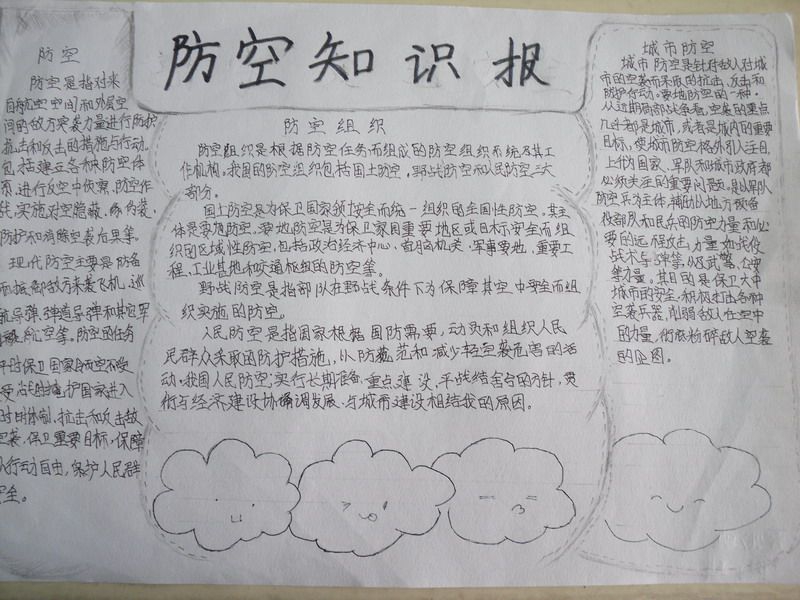 防空知识报
防空
防空是指对来
自防空空间和外层空
间的敌方突袭力量进行防护
抗击和反击的措施与行动。
包括建立各种防空体
系,进行反空中侦察,防空作
战,实施对空隐蔽、伪装、
防护和消除空袭后果等。
现代防空主要是防备
和抵御敌方来袭飞机、巡
航导弹、弹道导弹和其它军
航空等。防空的任务
平时保卫国家
护国家进入
战时体制、抗击和反击敌
空袭、保卫重要目标,保障
行动自由,保护人民群
安全。
防空组织
防空组织是根据防空任务而组成的防空组织系统及其工
作机构。我国的防空组织包括国土防空,野战防空和人民防空三大
部分。
国土防空是为保卫国家领土安全而统一组织的全国性防空。其主
体是要地防空。要地防空是为保卫国重要地区或目标安全而组
织的区域性防空,包括政治经济中心、首脑机关、军事要地、重要工
程、工业基地和交通枢纽的防空等。
野战防空是指部队在野战条件下为保障其空中安全而组
织实施的防空。
人民防空是指国家根据国防需要,动员和组织人民
民群众采取的防护措施,以防范和减少轻空袭危害的活
动。我国人民防空实行长期准备、重点建设、平战结合的方针,贯
衍与经济建设协调发展、与城市建设相结我的原因。
城市防空
城市防空是针对敌人对城
市的空袭而采取的抗击、反击和
防护行动。要地防空的一种。
从近期局部战条看,空袭的重点
几乎都是城市,或者是城内的重要
目标,使城市防空格外引人注目,
上代为国家、军队和城市政府都
必须关注的重要问题。是以军队
防空兵为主体,辅助以地方预备
役部队和民兵的防空力量和必
要的远程攻击力量,如
等力量。其目的是保卫大中
城市的安全,积极走击各种
空袭兵器,削弱敌人在空中
的力量,彻底粉碎敌人空袭
的企图。